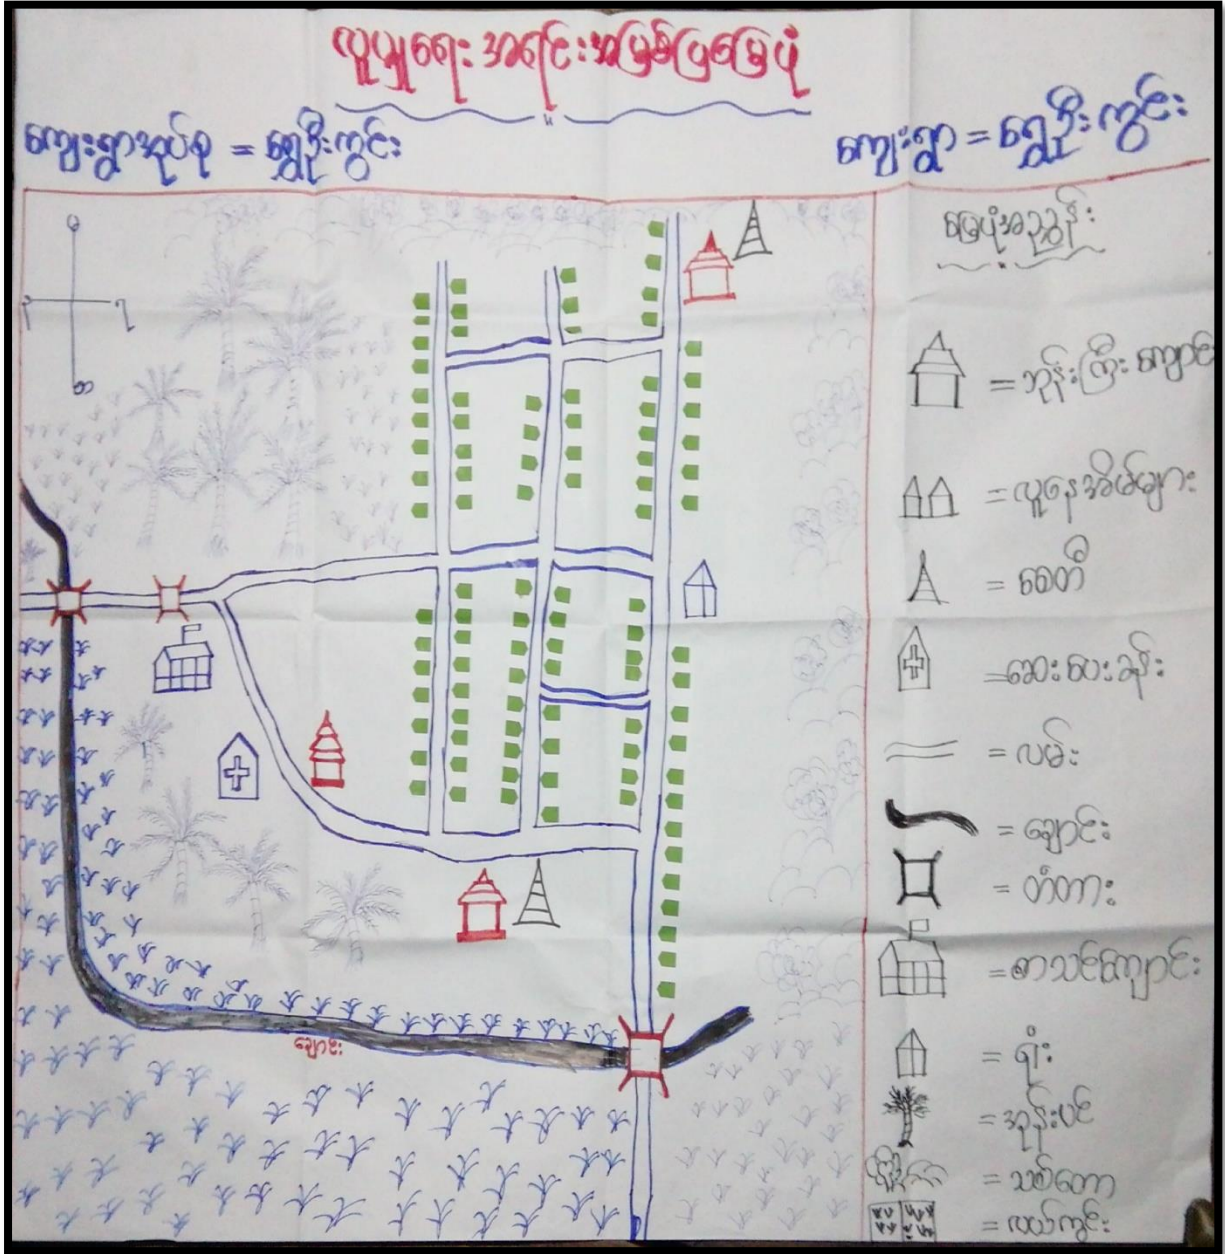 လူမှုရေး အရင်းအမြစ်ပြမြေပုံ
ကျေးရွာအုပ်စု = ရွှေဦးကွင်း
ကျေးရွာ = ရွှေဦးကွင်း
မြေပုံအညွှန်း
= ဘုန်းကြီးကျောင်း
= လူနေအိမ်များ
= စေတီ
= ဆေးပေးခန်း
= လမ်း
= ချောင်း
= တံတား
= စာသင်ကျောင်း
= ရုံး
= အုန်းပင်
= သစ်တော
= လယ်ကွင်း
ချောင်း